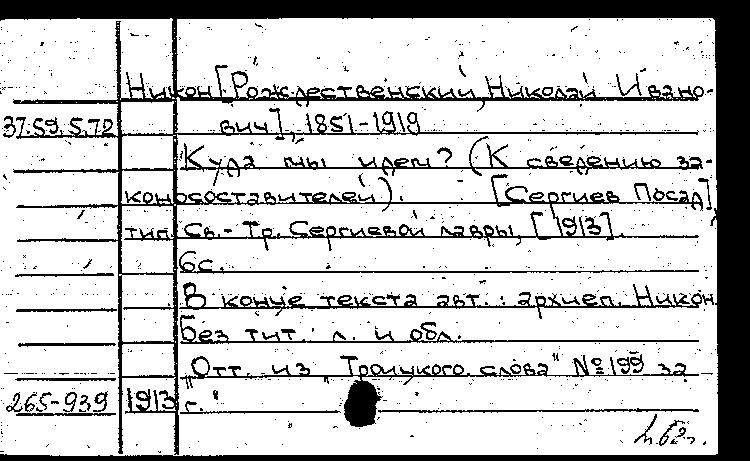 Никон [Рождественский, Николай Ивано-
37.59.5.72 вич], 1851-1919
Куда мы идем? (К сведению за-
коносоставителей). [Сергиев Посад],
тип. Св.-Тр. Сергиевой лавры, [1913].
6с.
В конце текста авт.: архиеп. Никон
Без тит. л. и обл.
"Отт. из "Троицкого слова" №199 за
265-939 1913 г."